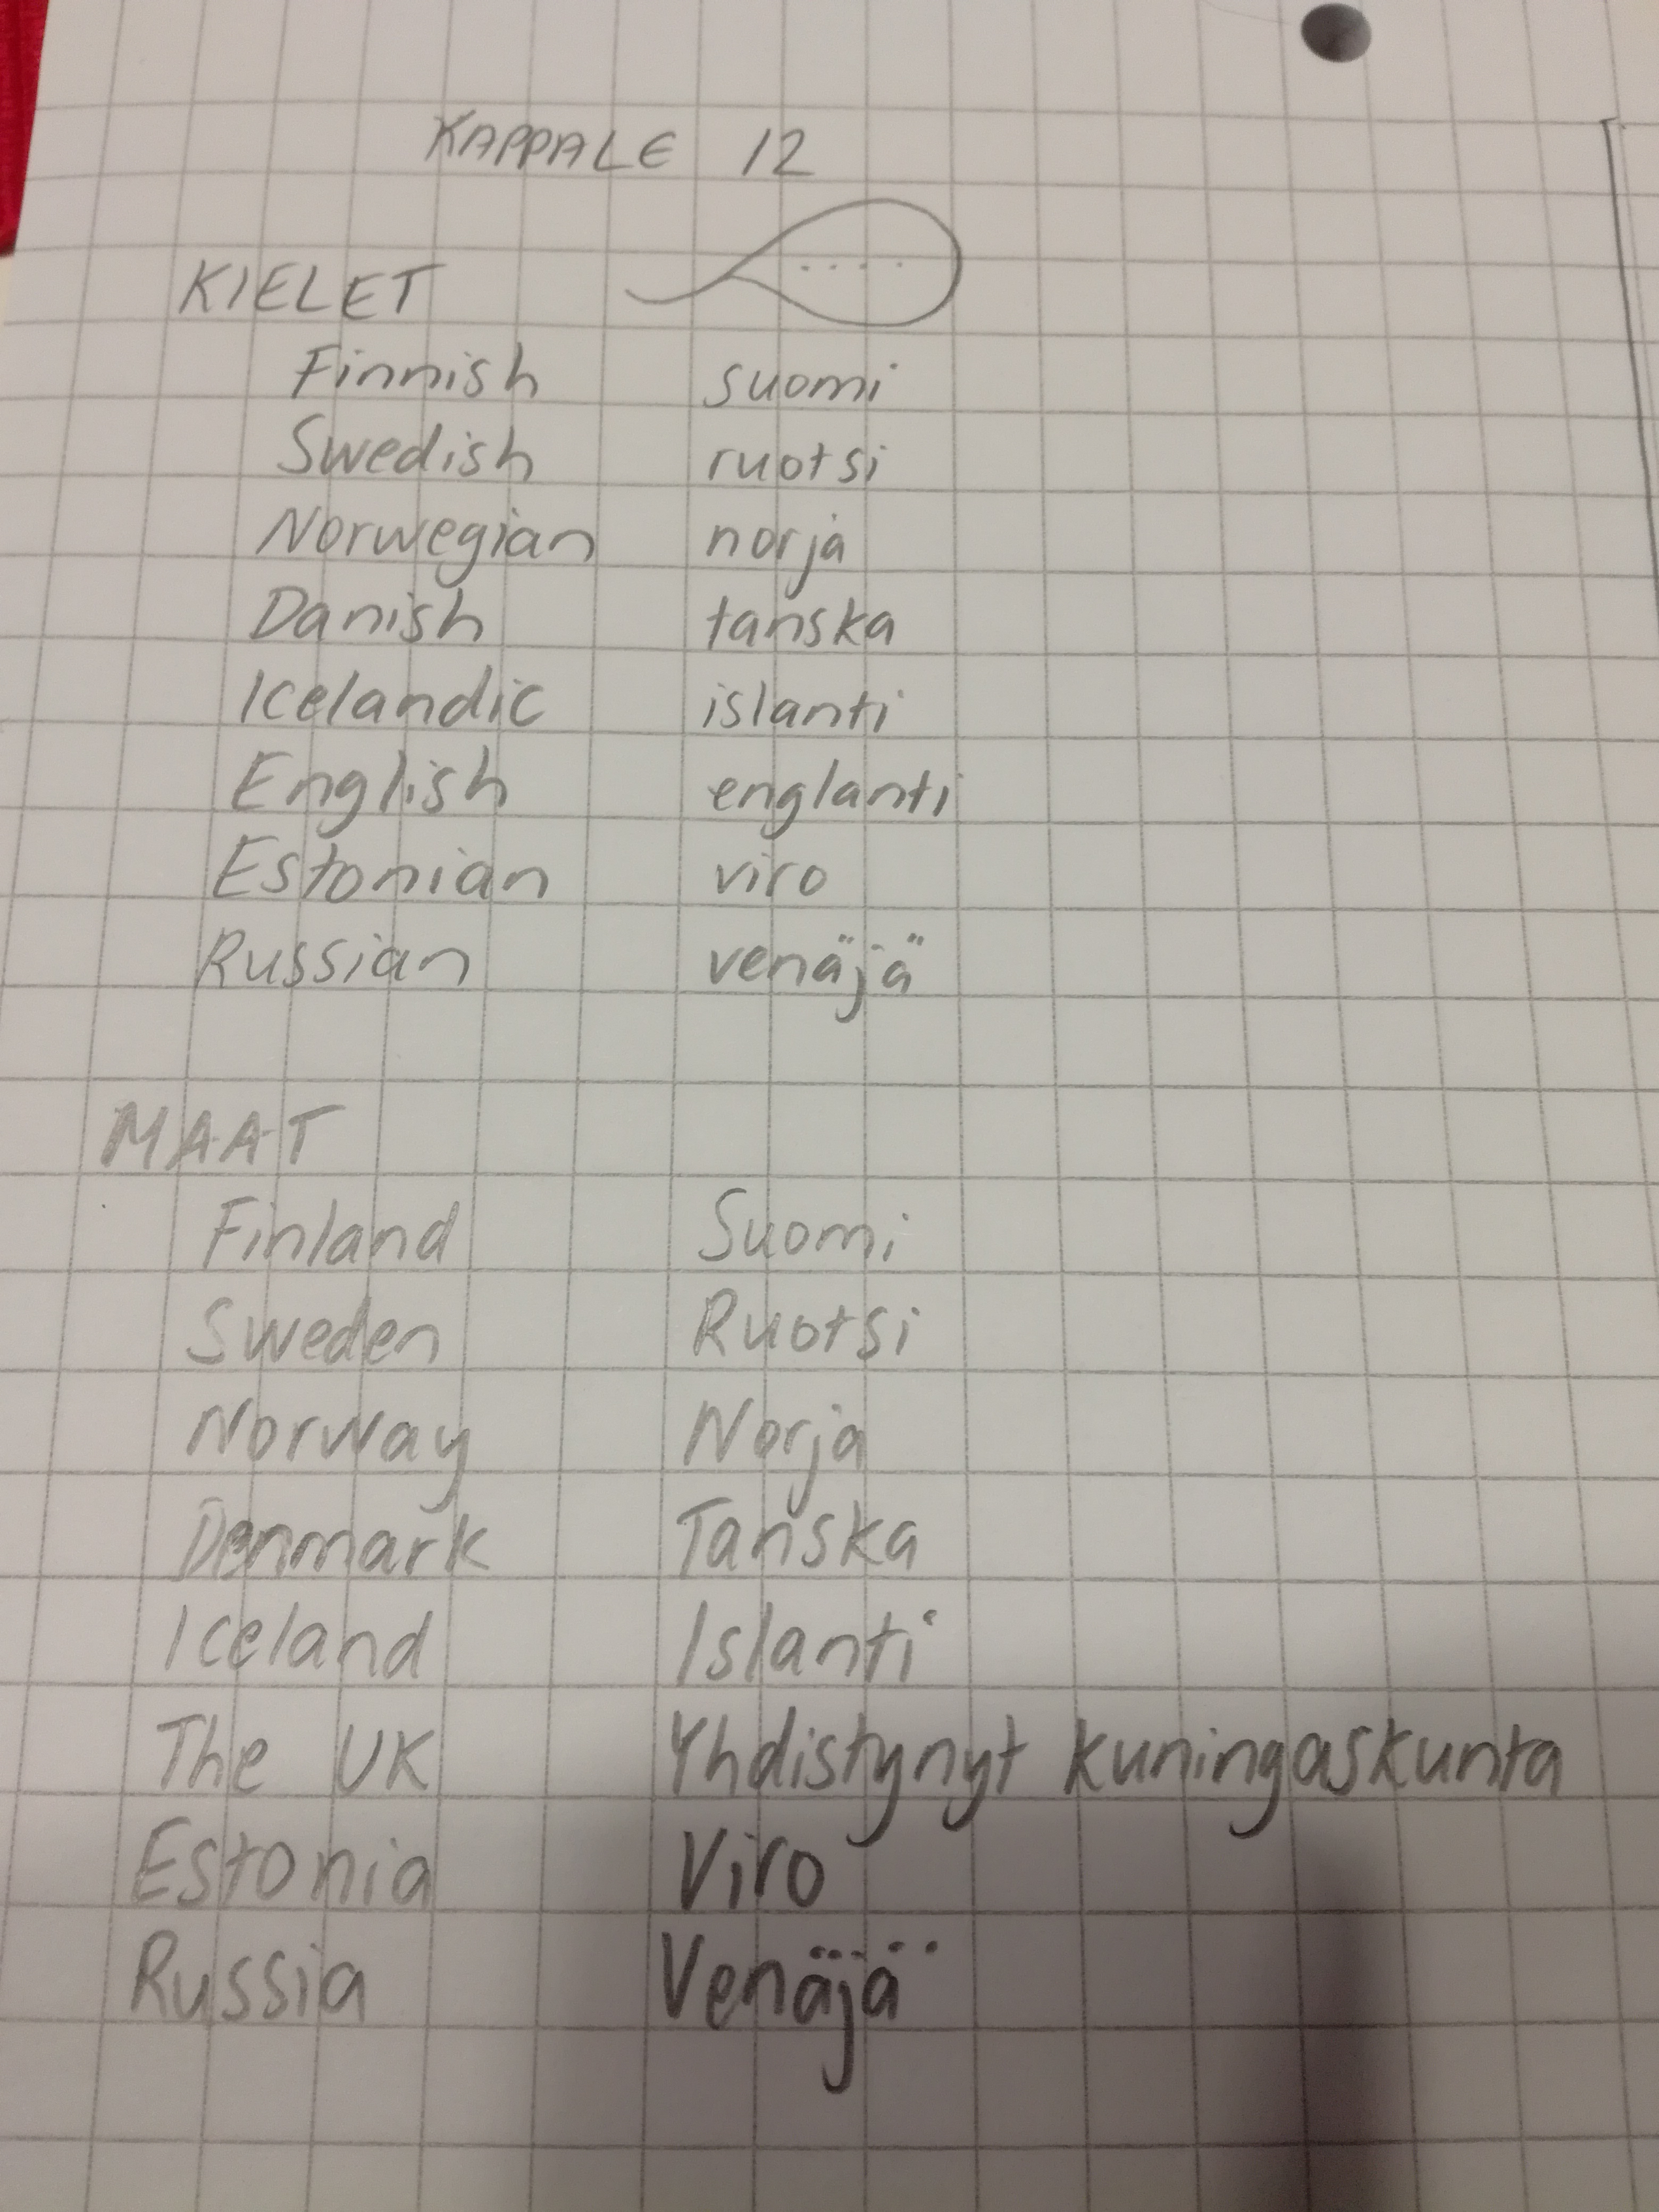 KAPPALE 12
KIELET
Finnish suomi
Swedish ruotsi
Norwegian norja
Danish tanska
Icelandic islanti
English englanti
Estonian viro
Russian venäjä
MAAT
Finland Suomi
Sweden Ruotsi
Norway Norja
Denmark Tanska
Iceland Islanti
The UK Yhdistynyt kuningaskunta
Estonia Viro
Russia Venäjä